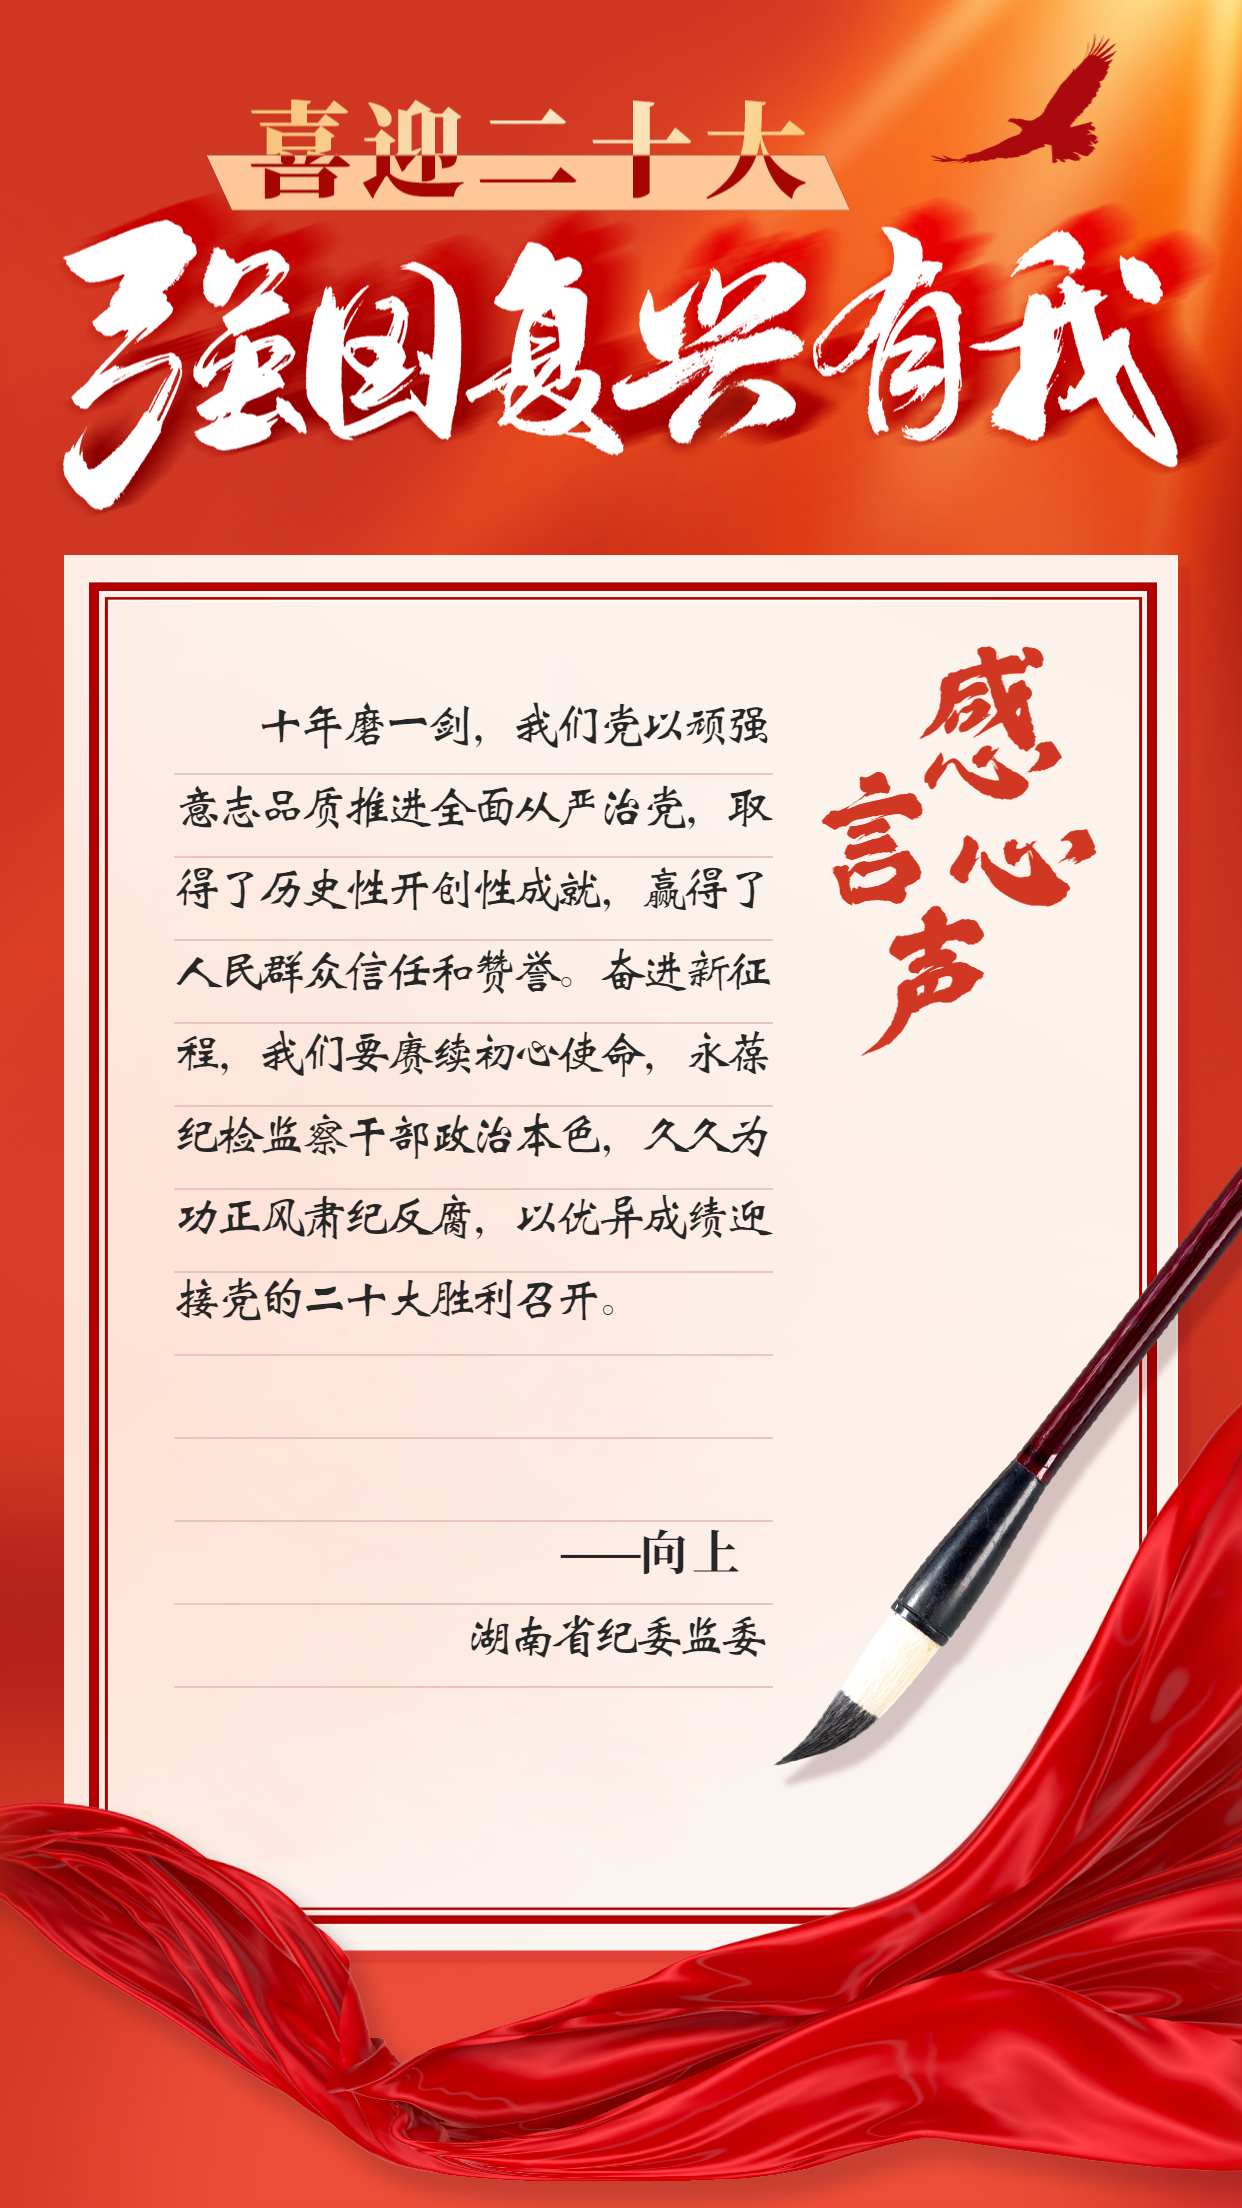 喜迎二十大
强国复兴有我
感言心声
十年磨一剑，我们党以顽强
意志品质推进全面从严治党，取
得了历史性开创性成就，赢得了
人民群众信任和赞誉。奋进新征
程，我们要赓续初心使命，永葆
纪检监察干部政治本色，久久为
功正风肃纪反腐，以优异成绩迎
接党的二十大胜利召开。
——向上
湖南省纪委监委